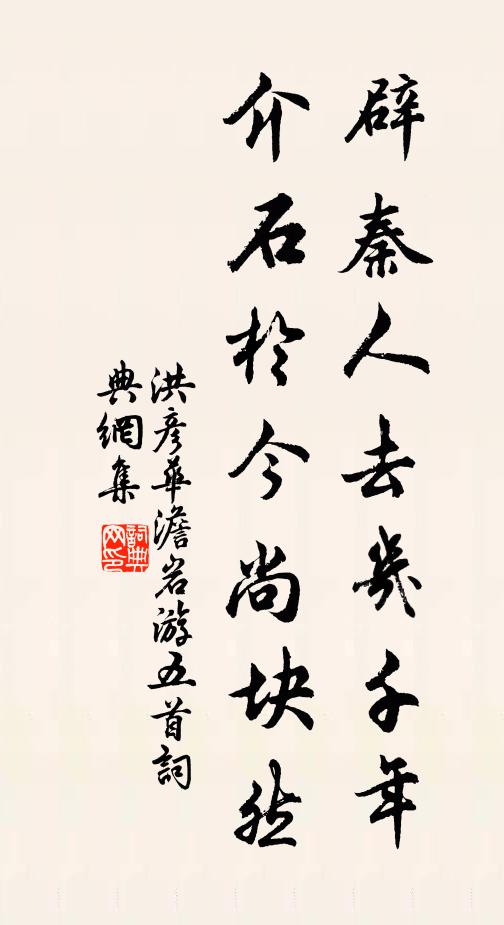 辟秦人去幾千年
介石於今尚块然
洪彦華澹岩游五首詞
典網集
詞典网印